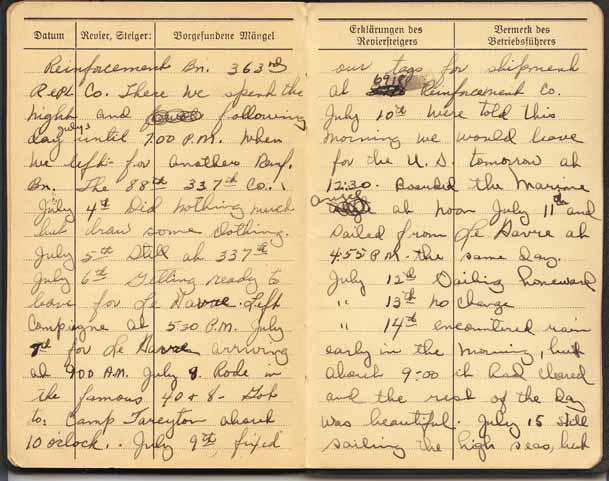 Datum
Revier, Steiger:
Vorgefundene Mängel
Reinforcement Bn. 363rd
Repl Co. There we spend the
night and following
day July 3 until 7:00 P.M. when
we left for another Reinf.
Bn. The 88th 337th Co.
July 4th Did nothing much
but draw some clothing.
July 5th Still at 337th
July 6th Getting ready to
leave for Le Havre. Left
Compiegne at 5:30 P.M. July
7th for Le Havre arriving
at 9:00 A.M. July 8. Rode in
the famous 40 + 8 - Got
to: Camp Tareyton about
10 o'clock.. July 9th, fixed
Erklärungen des
Reviersteigers
Vermerk des
Betriebsführers
our tags for shipment
at 6918 Reinforcement Co.
July 10th Were told this
morning we would leave
for the U.S. tomorrow at
12:30. Boarded the Marine
Angel at noon July 11th and
sailed from Le Havre at
4:55 P.M. the same day.
July 12th Sailing homeward
" 13th no change
" 14th encountired rain
early in the morning, but
about 9:00 it had cleared
and the rest of the day
was beautiful. July 15 still
sailing the high seas, but